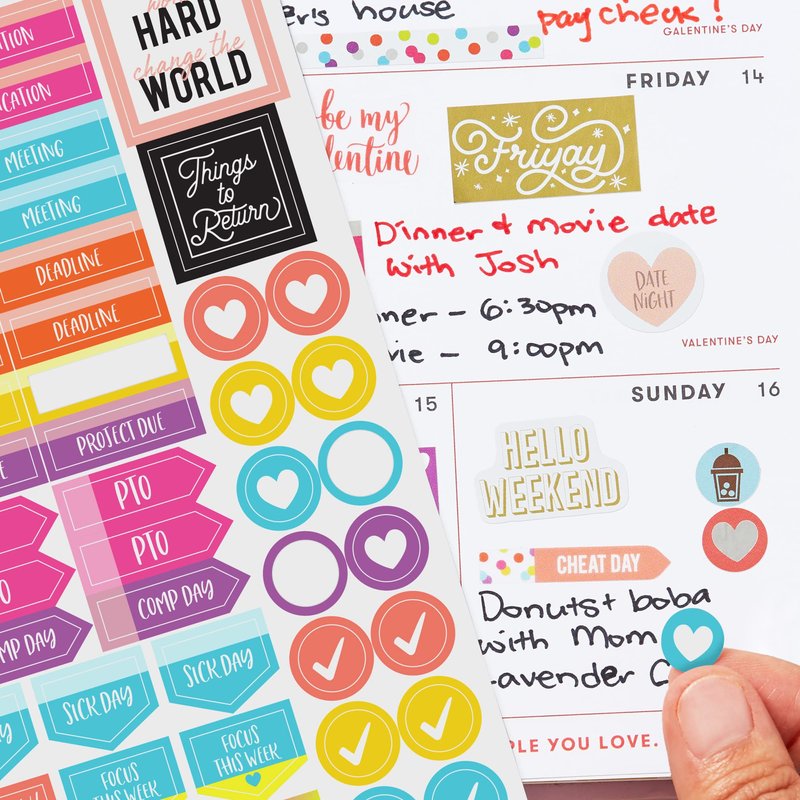 HARD
change the
WORLD
MEETING
MEETING
DEADLINE
DEADLINE
PROJECT DUE
PTO
PTO
COMP DAY
SICK DAY
SICK DAY
FOCUS
THIS WEEK
FOCUS
THIS WEEK
Things
to
Return
house
paycheck!
GALENTINE'S DAY
FRIDAY 14
be my
Friyay
Dinner + movie date
with Josh
DATE
NIGHT
6:30pm
9:00pm
VALENTINE'S DAY
15
SUNDAY 16
HELLO
WEEKEND
CHEAT DAY
Donuts + boba
with Mom
YOU LOVE.